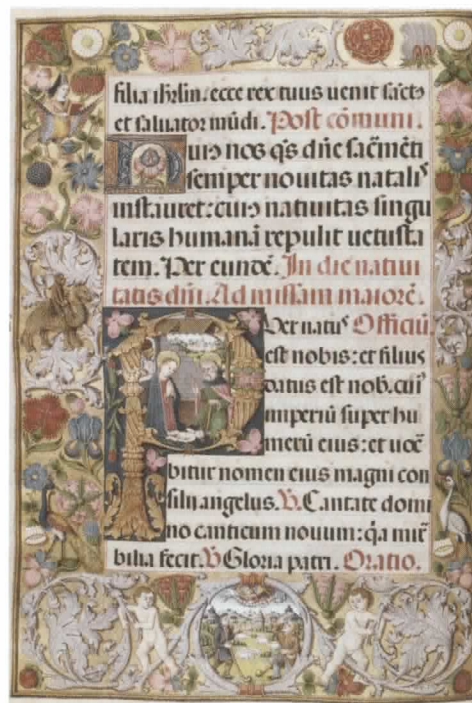 filia ihrlm. ecce rex tuus uenit sāctꝰ
et saluator mūdi. Post cōmuni.
Huiꝰ nos q̄s dñe sac̄mēti
semper nouitas natalıꝰ
instauret: cuiꝰ natiuitas singu
laris humanā repulit uetusta
tem. Per eundē. In die natiui
tatis dñi. Ad missam maiorē.
Puer natꝰ Officiū.
est nobis: et filius
datus est nob. cuiꝰ
imperiū super hu
merū eius: et uoc̄
bitur nomen eius magni con
silii angelus. V. Cantate domi
no canticum nouum: q̄a mir̄
bilia fecit. V Gloria patri. Oratio.